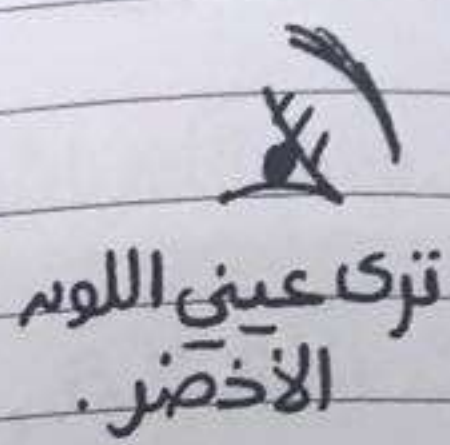 ترى عيني اللون
الأخضر.